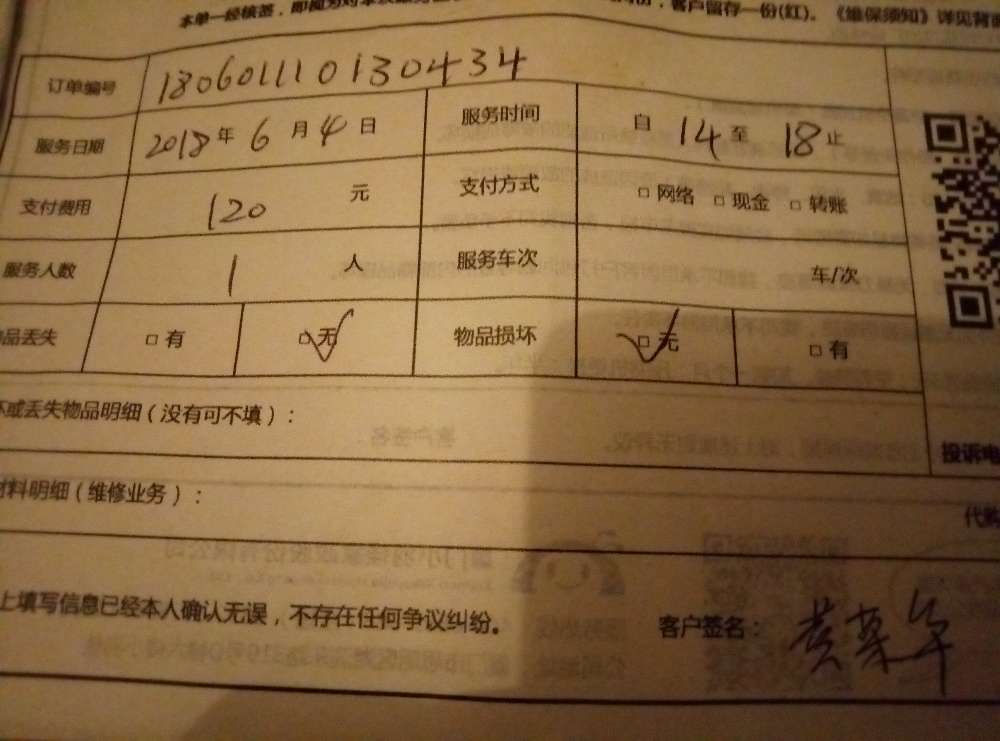 本单一经核签,即视为对本次服务
客户留存一份(红)。《维保须知》详见背
订单编号 180601110130434
服务日期 2018年6月4日 服务时间 自14至18止
支付费用 120元 支付方式 □网络 □现金 □转账
服务人数 1人 服务车次 车/次
品丢失 □有 □无 物品损坏 □无 □有
坏或丢失物品明细(没有可不填):
投诉电
材料明细(维修业务):
代购
上填写信息已经本人确认无误,不存在任何争议纠纷。 客户签名: